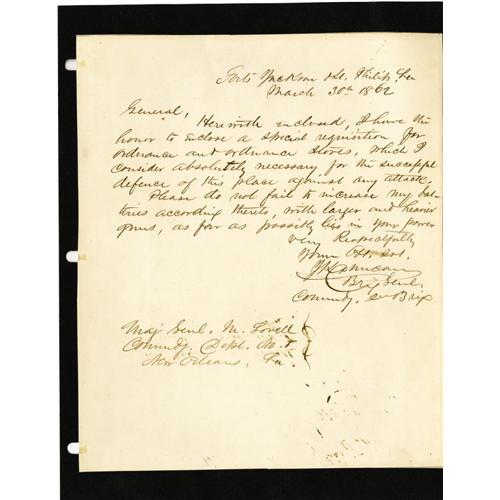 Forts Jackson & St. Philip, La
March 30th 1862
General,
Herewith inclosed, I have the
honor to inclose a special requisition for
ordnance and ordnance stores, which I
consider absolutely necessary for the successful
defence of this place against any attack.
Please do not fail to increase my bat-
teries according thereto, with larger and heavier
guns, as far as possibly lies in your power
Very Respectfully
Your Obt. Svt.
J K Duncan
Brig Genl.
Comndg.
Maj Genl. M. Lovell
Comndg. Dept. No. 1
New Orleans, La.